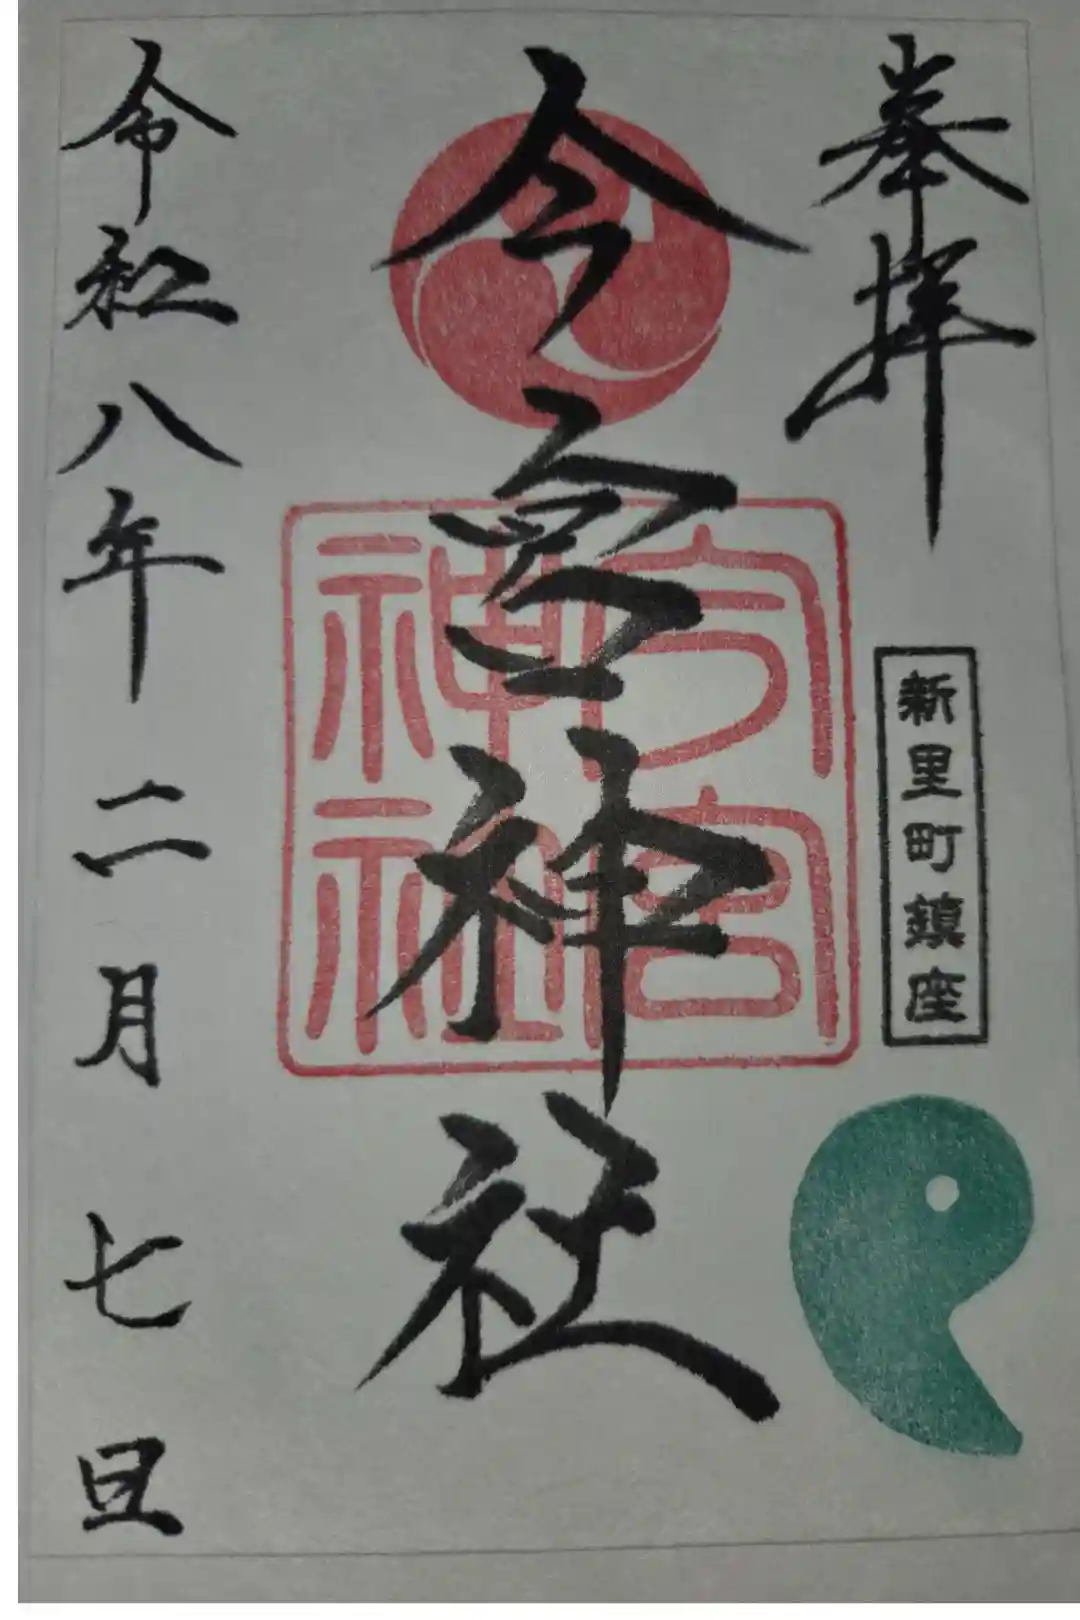 奉拝
新里町鎮座
今宮神社
今宮神社
令和八年二月七旦